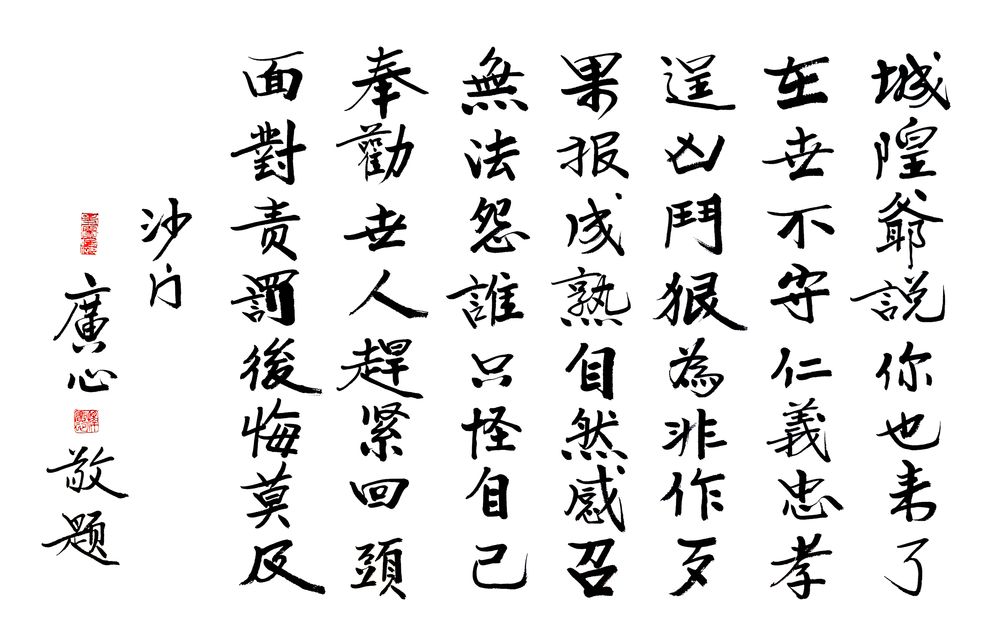 城隍爺説你也来了
在世不守仁義忠孝
逞凶鬥狠為非作歹
果报成熟自然感召
無法怨誰只怪自己
奉勸世人趕緊回頭
面對责罰後悔莫及
沙门
廣心
敬题